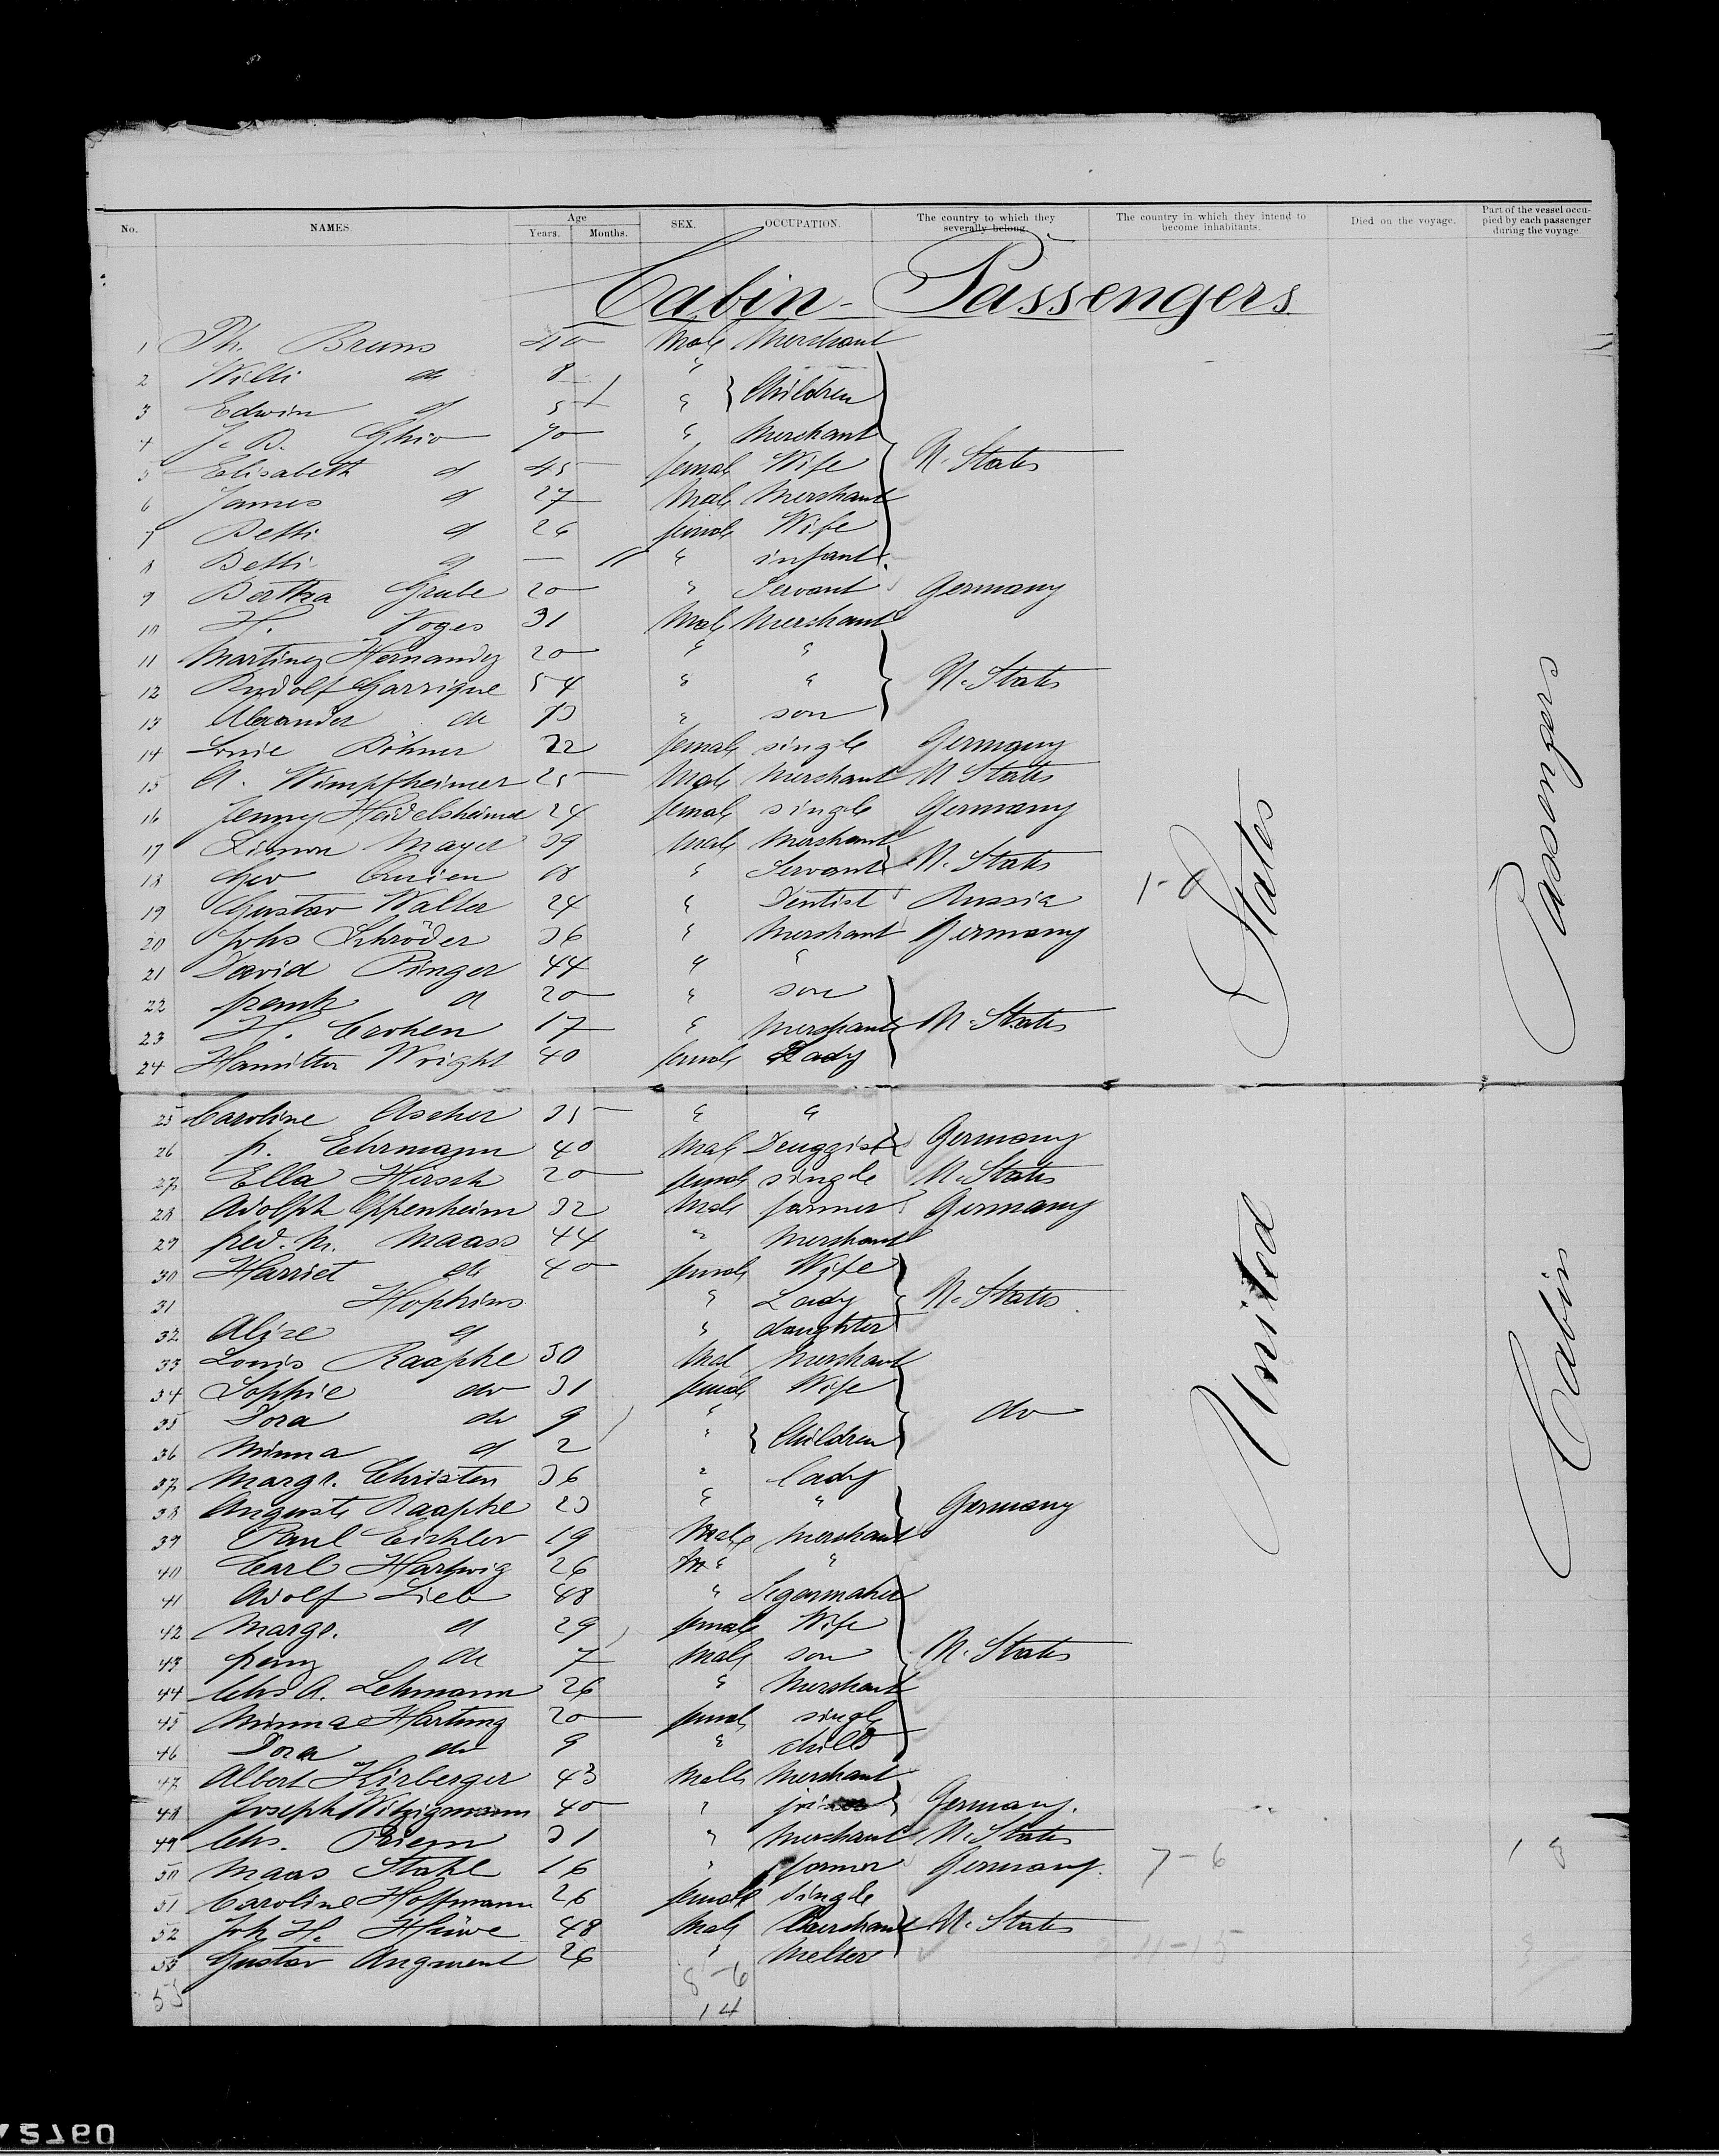 No. NAMES. Age Years. Months. SEX. OCCUPATION. The country to which they severally belong. The country in which they intend to become inhabitants. Died on the voyage. Part of the vessel occupied by each passenger during the voyage.
Cabin-Passengers
1 Ph. Bruns 40 Male Merchant
2 Willi do 8 "
3 Edwin do 5 " Children
4 J. B. Ghio 70 " Merchant
5 Elisabeth do 45 female Wife U. States
6 James do 27 Male Merchant
7 Betti do 26 female Wife
8 Betti do — 11 " infant
9 Bertha Grube 20 " Servant Germany
10 H. Voges 31 Male Merchant
11 Martinez Hernandez 20 " "
12 Rudolf Garrigue 54 " " U. States
13 Alexander do " son
14 Böhner 22 female single Germany
15 A. Wimpfheimer 25 Male Merchant U. States
16 Jenny Heidelsheimer 24 female single Germany
17 Simon Mayer 39 Male Merchant
18 Geo " Servant U. States
19 Gustav Walter 24 " Dentist Russia 1-8
20 Johs Schröder 36 " Merchant Germany
21 David Pinger 44 " "
22 frank do 20 " son
23 H. Crohen 17 " Merchant U. States
24 Hamilton Wright 40 female Lady
25 Caroline Ascher 35 " "
26 f. Ehrmann 40 Male Druggist Germany
27 Ella Hirsch 20 female single U. States
28 Adolph Oppenheim 32 Male farmer Germany
29 fred. M. Maass 44 " Merchant
30 Harriet do 40 female Wife
31 Hopkins " Lady U. States
32 Alize do " daughter
33 Louis Raapke 30 Mal Merchant
34 Sophie do 31 female Wife
35 Dora do 9 " do
36 Minna do 2 " Children
37 Margr. Christen 36 " Lady
38 Auguste Raapke 23 " " Germany
39 Paul Eichler 19 Male Merchant
40 Carl Hartwig 26 M " "
41 Adolf Lieb 48 " Segarmaker
42 Margr. do 29 female Wife
43 do 7 Male son U. States
44 Chs A. Lehmann 26 " Merchant
45 Minna Hartung 20 female single
46 Dora do 9 " child
47 Albert Kirberger 43 Male Merchant
48 Joseph Witzigmann 40 " Germany.
49 Chs. Priem 31 " Merchant U. States
50 Maas Stahl 16 " farmer Germany. 7-6 1 8
51 Caroline Hoffmann 26 female Single
52 Joh H. Hüwe 48 Male Merchant U. States
53 Gustav Angment 26 " Melter 4-15
53 8-6
14
United States
Cabin Passengers